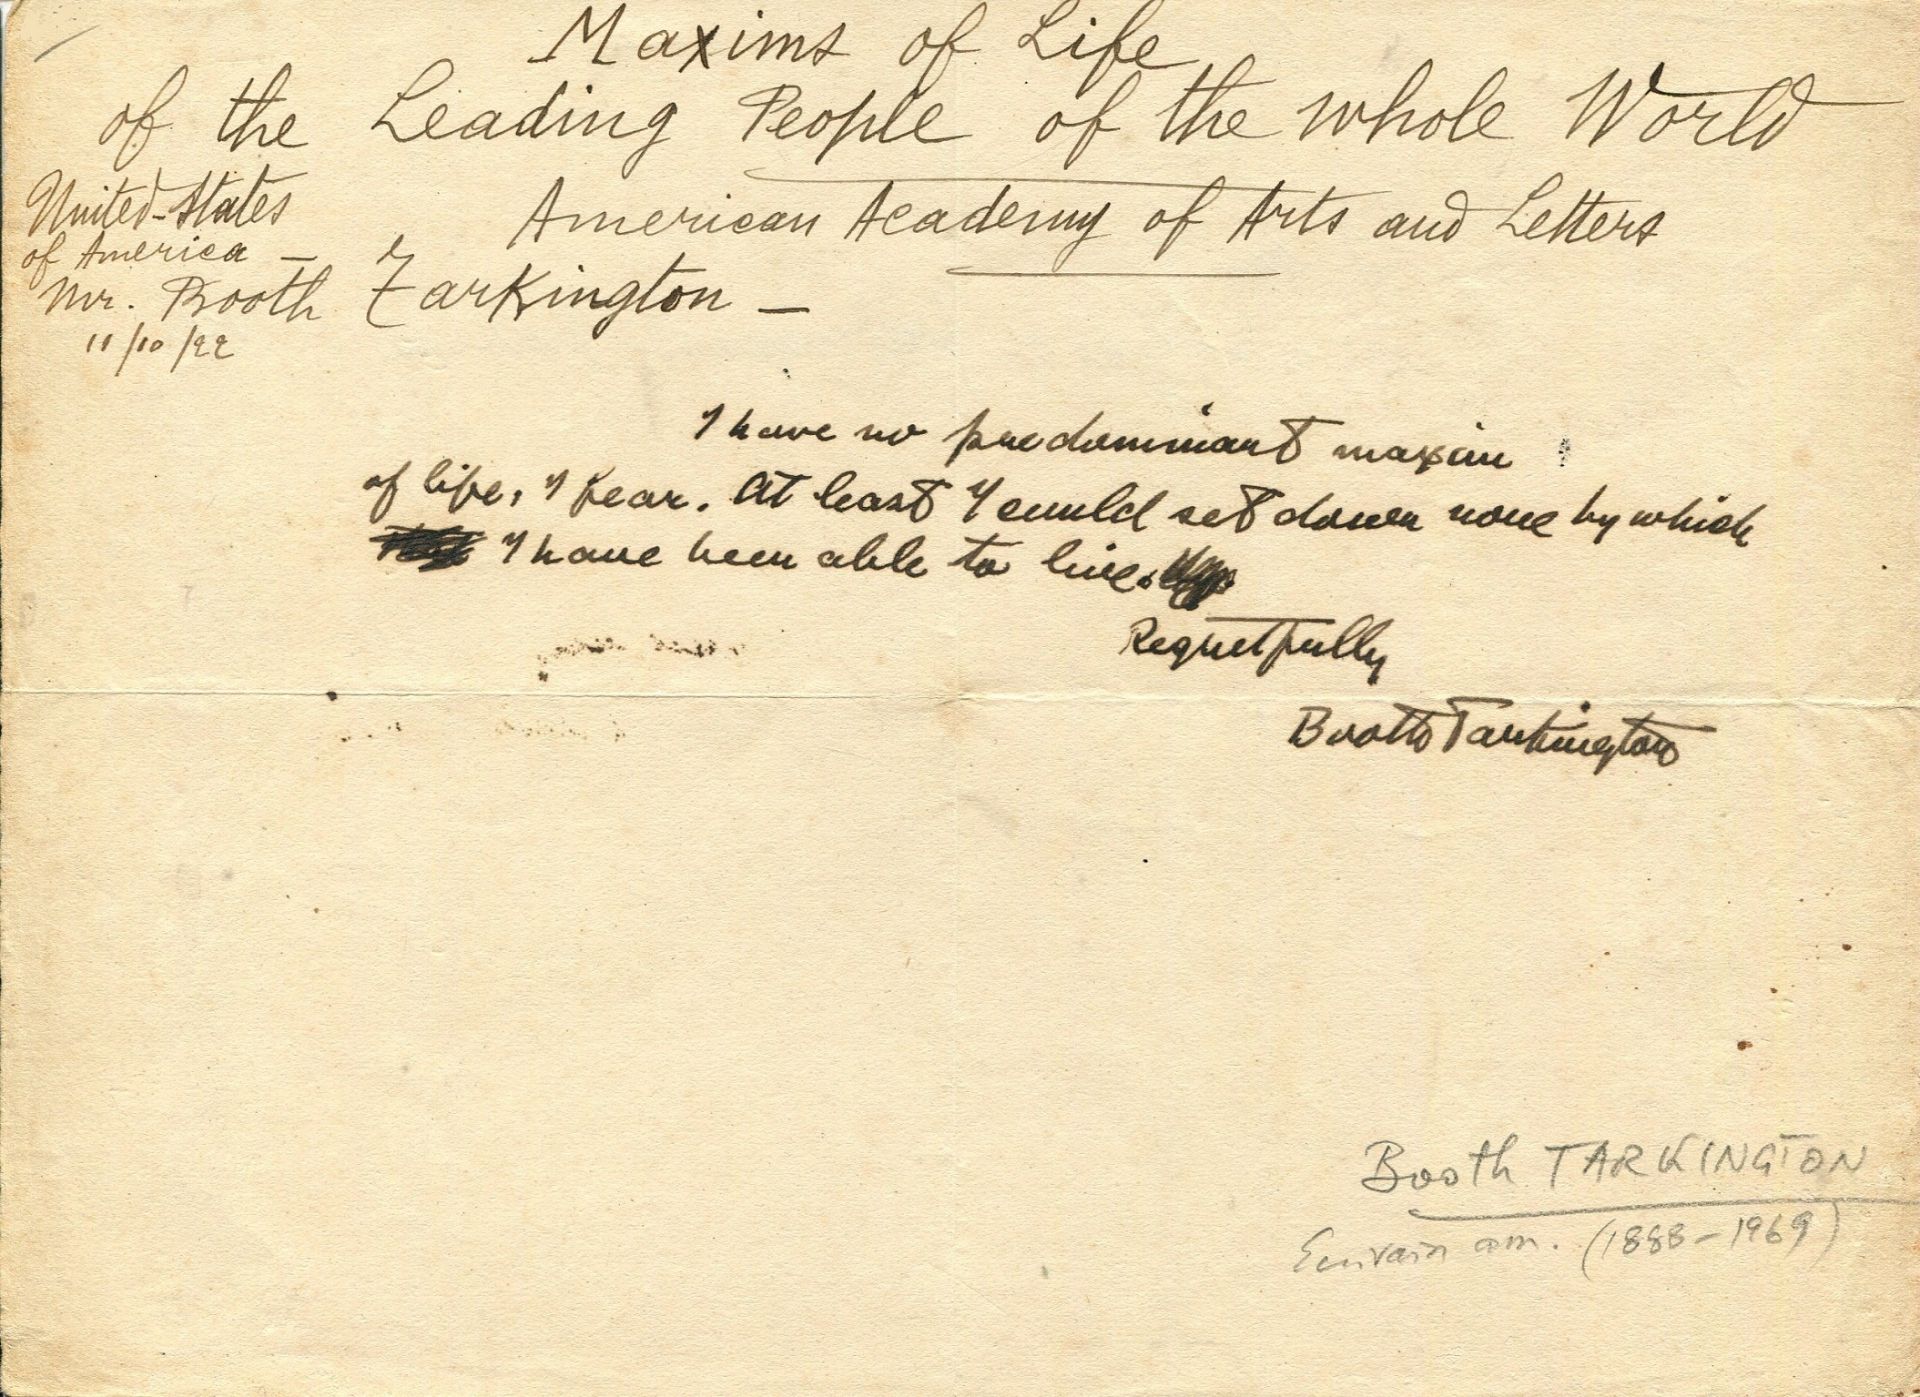 Maxims of Life
of the Leading People of the whole World
United-States
of America -
American Academy of Arts and Letters
Mr. Booth Tarkington -
11/10/22
I have no predominant maxim
of life, I fear. At least I could set down none by which
I have been able to live.
Regretfully
Booth Tarkington
Booth TARKINGTON
Ecrivain am. (1888-1969)